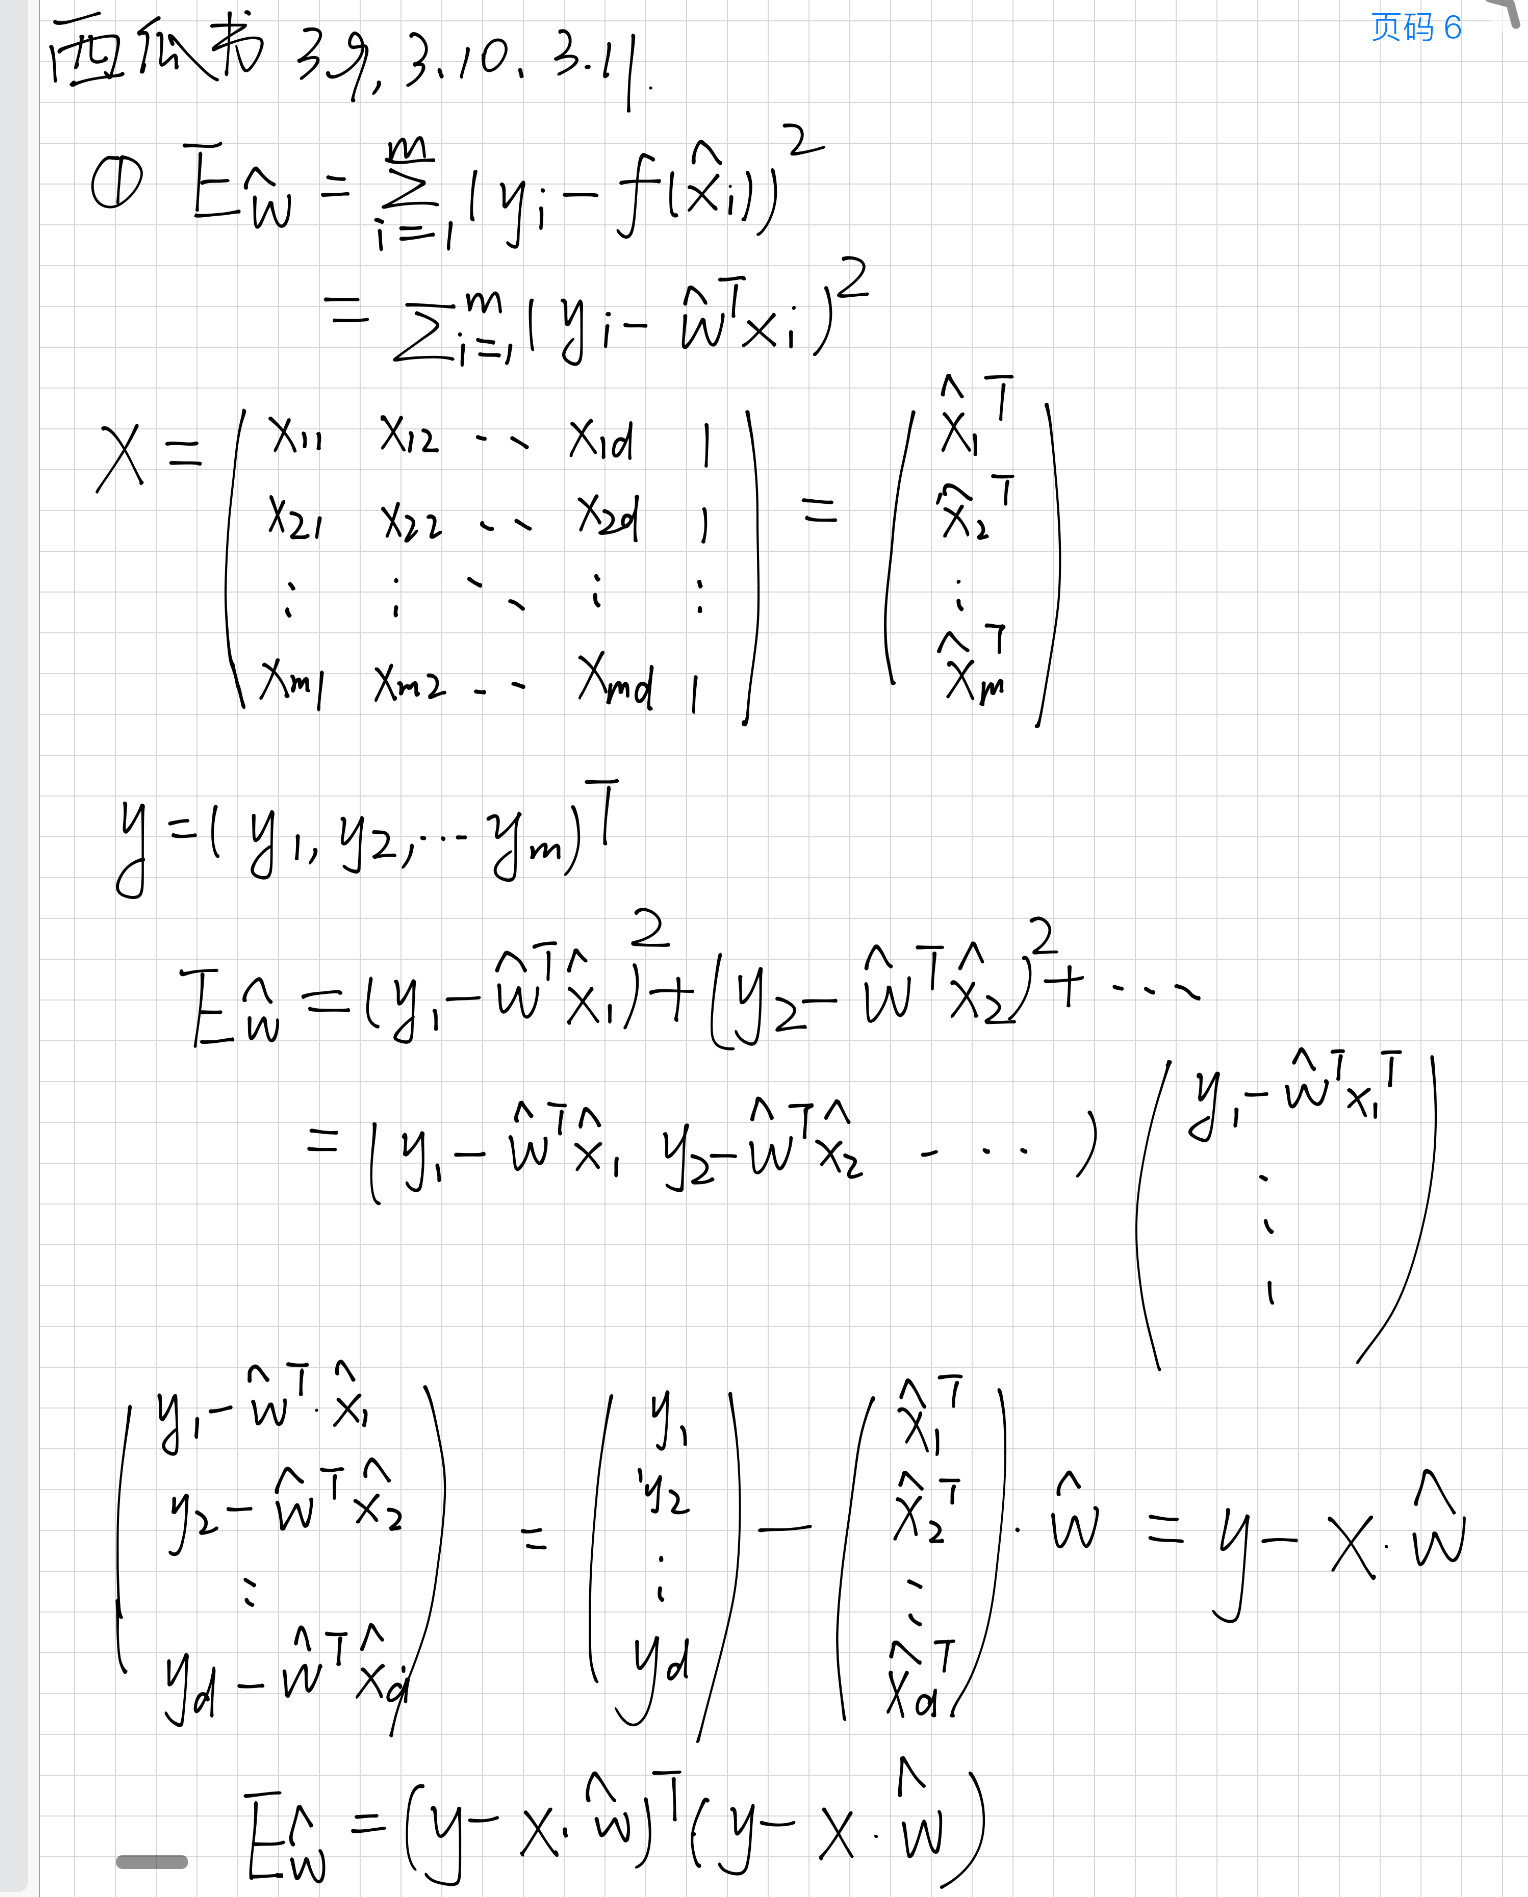 页码 6
西瓜书 3.9, 3.10、3.11.
① E_ŵ = ∑_{i=1}^{m} (y_i − f(x̂_i))²
= ∑_{i=1}^{m} (y_i − ŵ^T x_i)²
X = ( x_11 x_12 ⋯ x_1d 1 ; x_21 x_22 ⋯ x_2d 1 ; ⋮ ⋮ ⋱ ⋮ ⋮ ; x_m1 x_m2 ⋯ x_md 1 ) = ( x̂_1^T ; x̂_2^T ; ⋮ ; x̂_m^T )
y = (y_1, y_2, ⋯ y_m)^T
E_ŵ = (y_1 − ŵ^T x̂_1)² + (y_2 − ŵ^T x̂_2)² + ⋯
= (y_1 − ŵ^T x̂_1 y_2 − ŵ^T x̂_2 ⋯) ( y_1 − ŵ^T x_1^T ; ⋮ )
( y_1 − ŵ^T · x̂_1 ; y_2 − ŵ^T x̂_2 ; ⋮ ; y_d − ŵ^T x̂_d ) = ( y_1 ; y_2 ; ⋮ ; y_d ) − ( x̂_1^T ; x̂_2^T ; ⋮ ; x̂_d^T ) · ŵ = y − X · ŵ
E_ŵ = (y − X · ŵ)^T (y − X · ŵ)